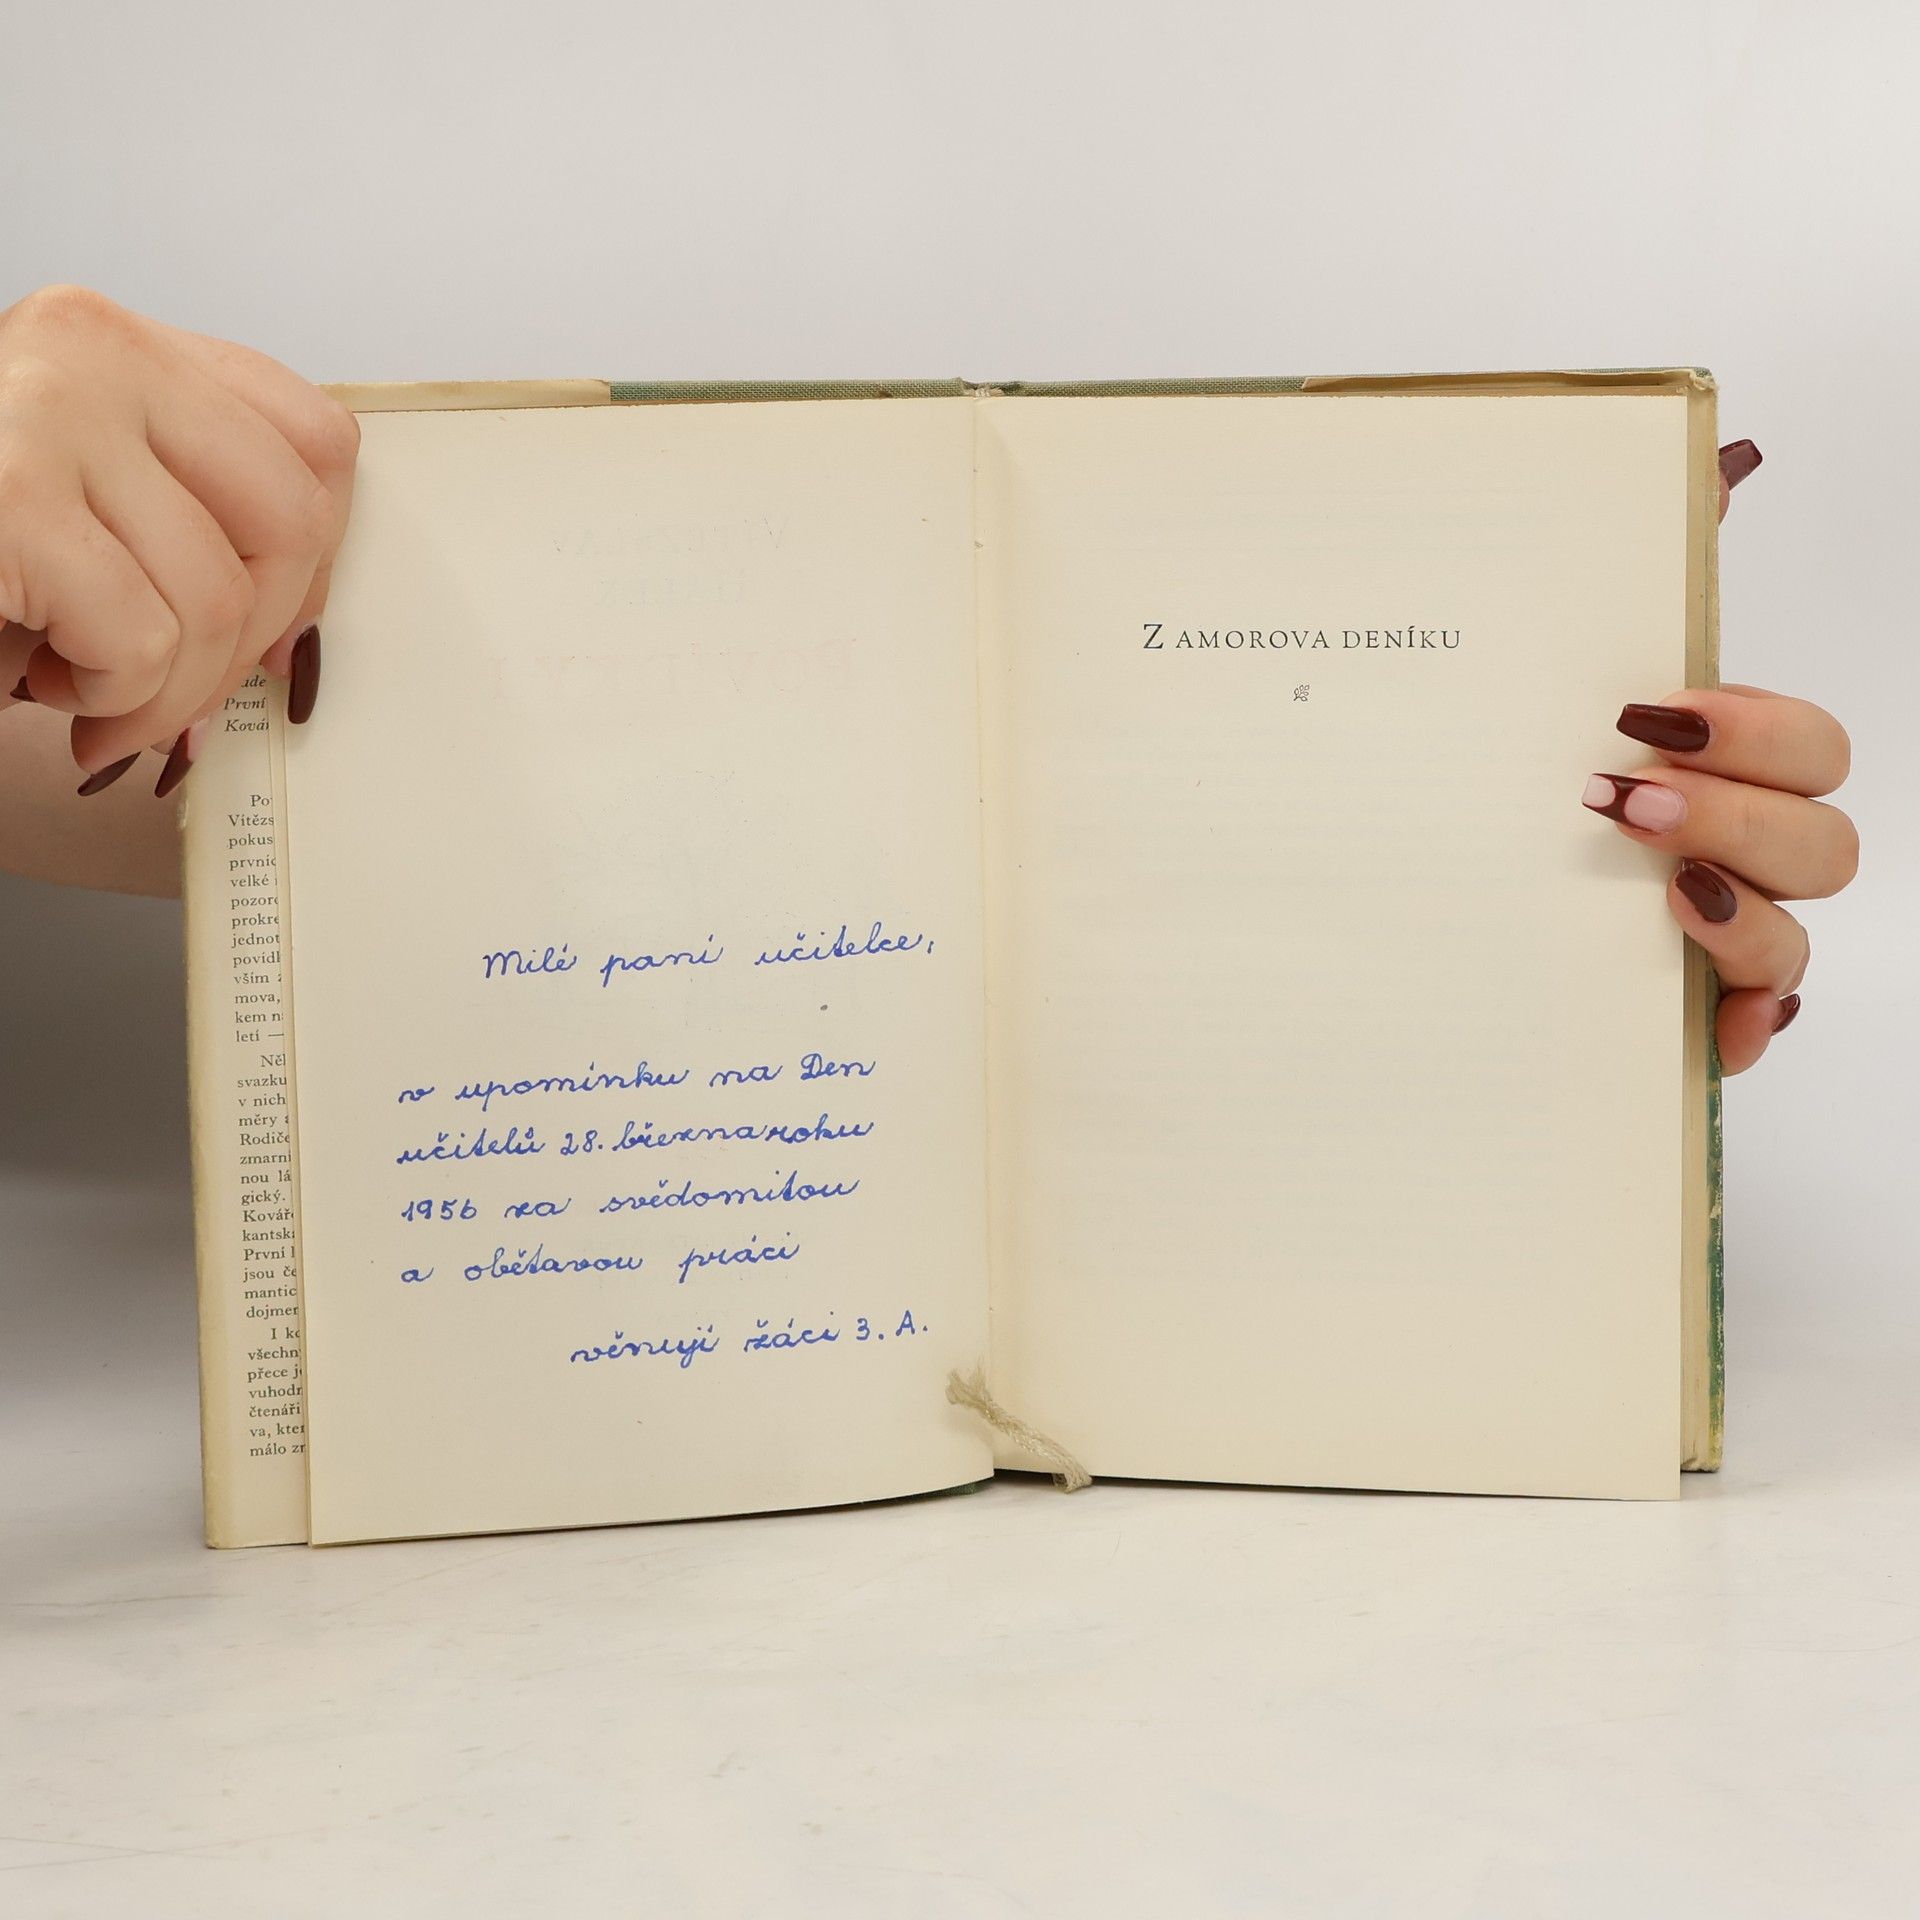 ude
První
Kovář
Po
Vítězs
pokus
prvníc
velké
pozoro
prokre
jednot
povídk
vším z
mova,
kem n
letí —
Něk
svazku
v nich
měry a
Rodiče
zmarni
nou lá
gický.
Kovářo
kantsk
První l
jsou če
mantic
dojmer
I ko
všechn
přece j
vuhodn
čtenáři
va, kter
málo zn
Milé paní učitelce,
v upomínku na Den
učitelů 28. března roku
1956 za svědomitou
a obětavou práci
věnují žáci 3. A.
Z AMOROVA DENÍKU